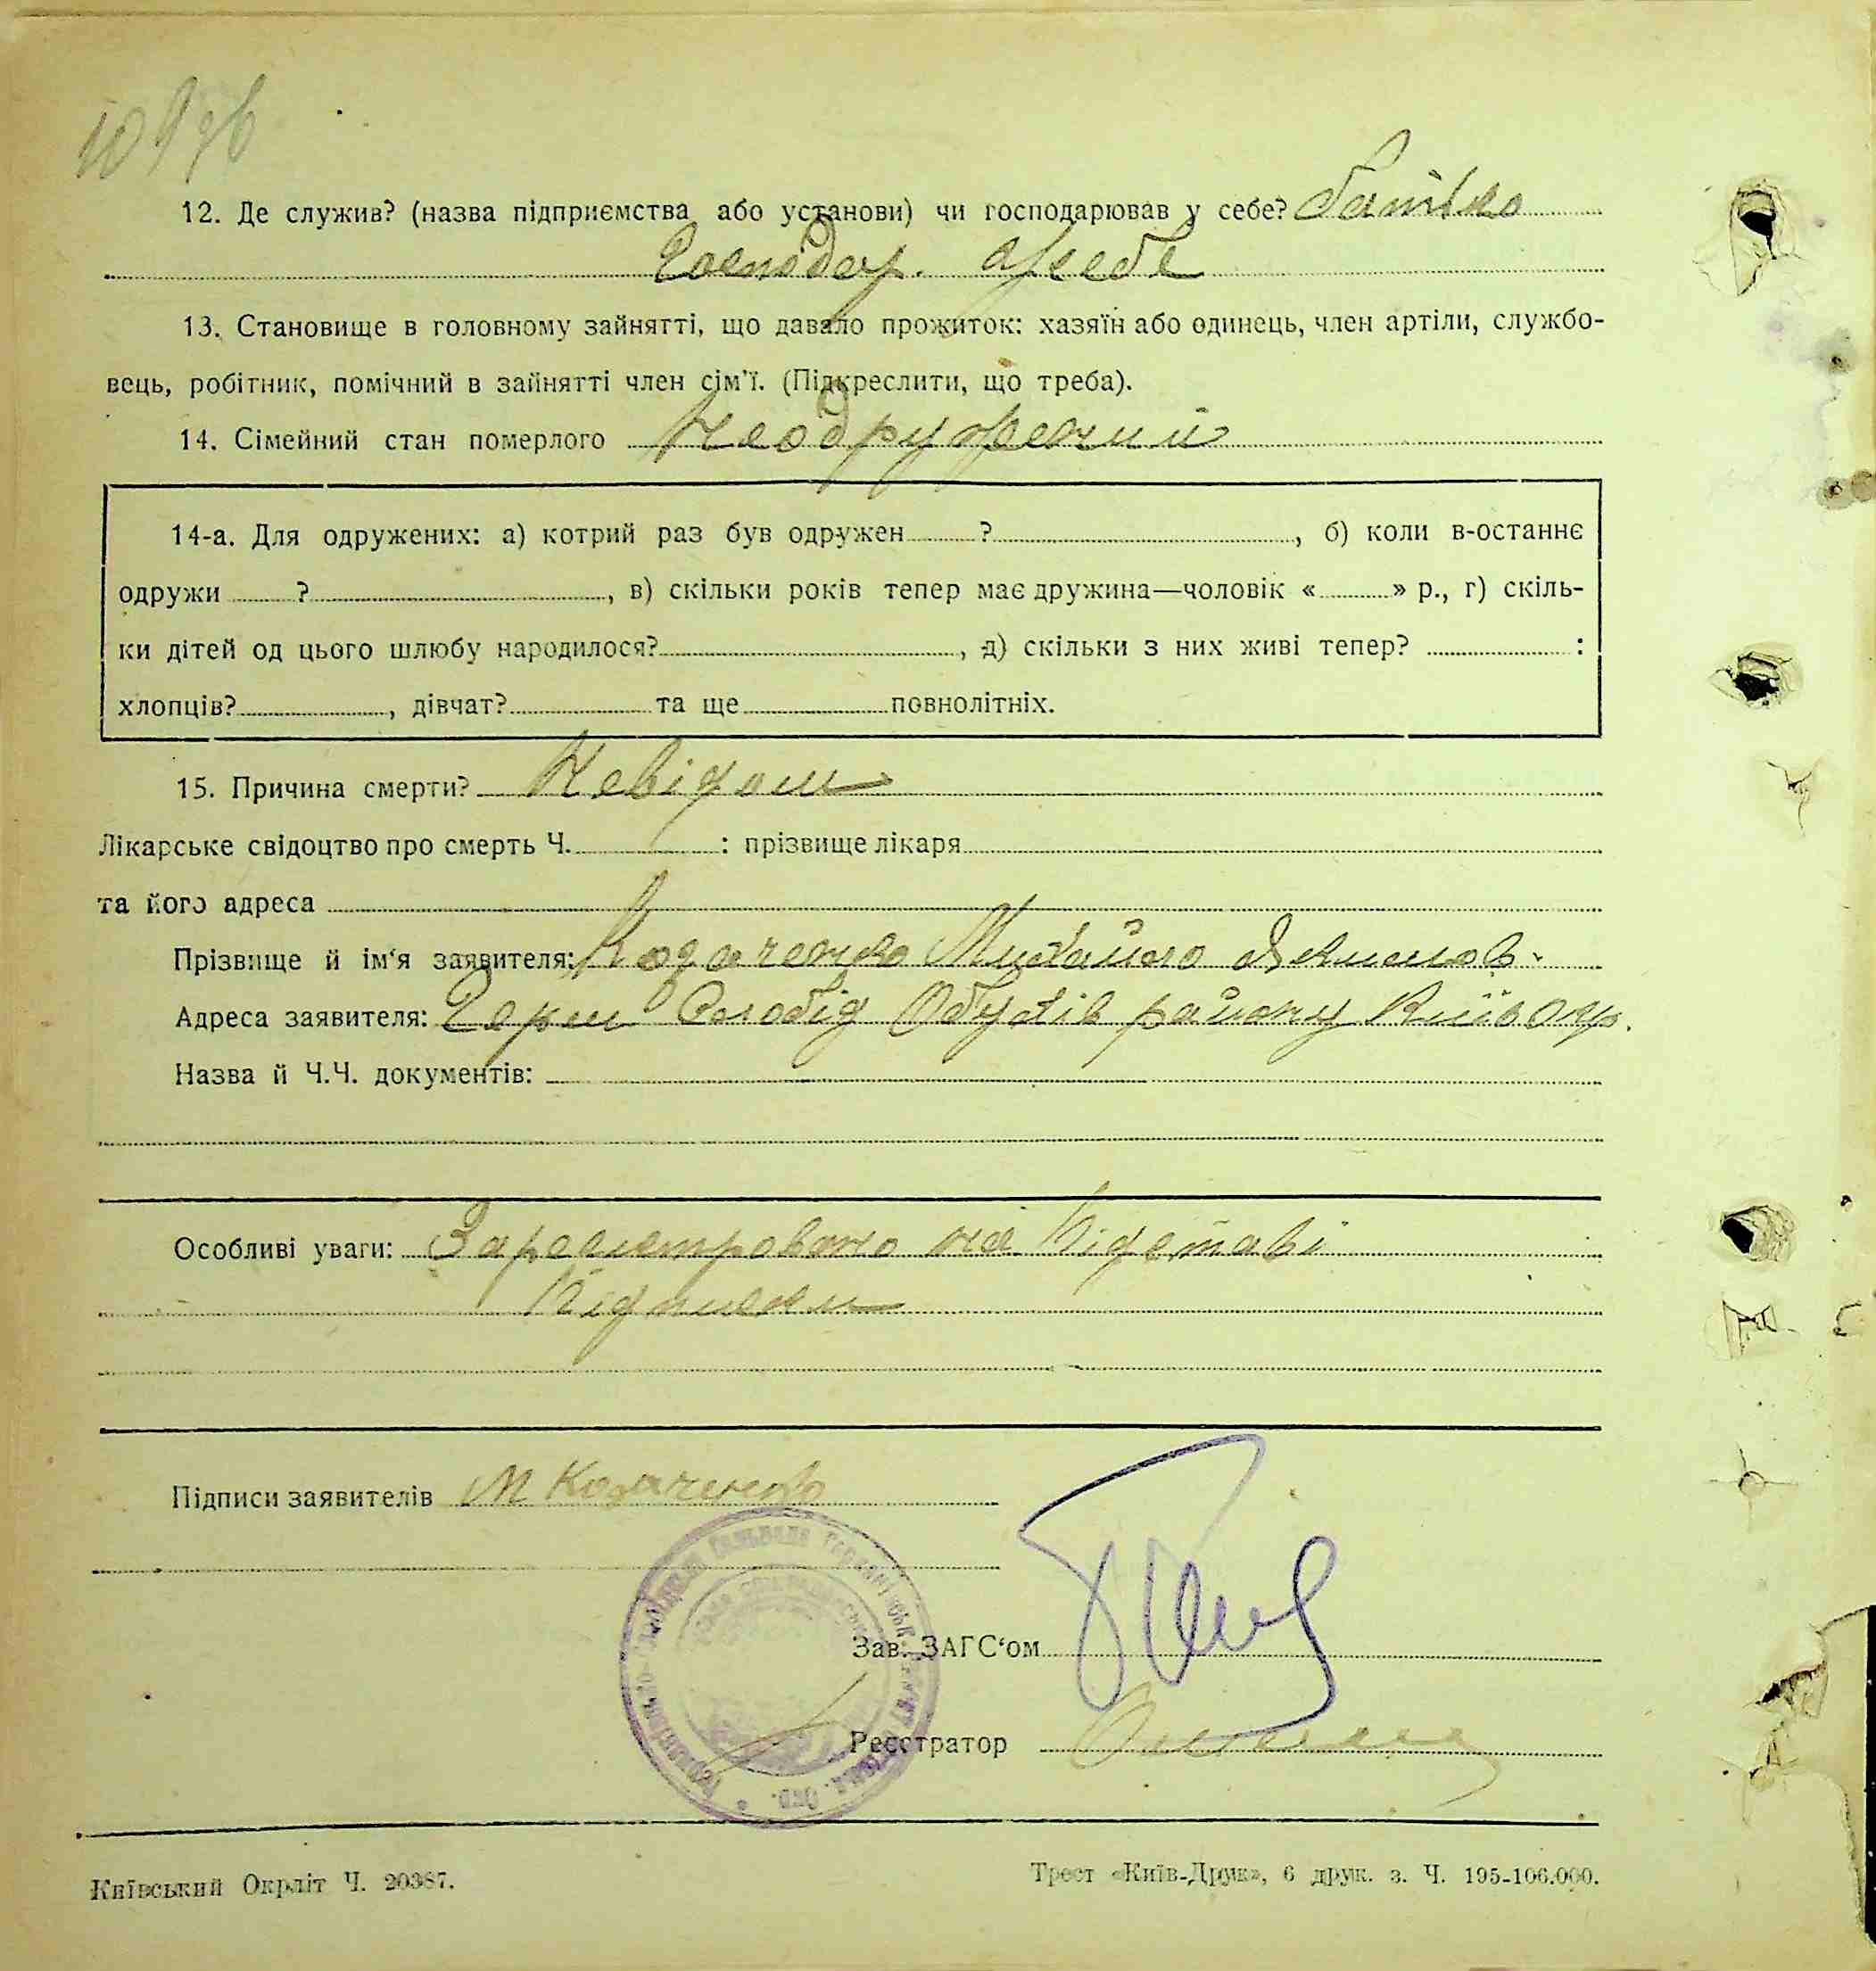 12. Де служив? (назва підприємства або установи) чи господарював у себе? батько
господар. усебе
13. Становище в головному зайнятті, що давало прожиток: хазяїн або одинець, член артіли, службо-
вець, робітник, помічний в зайнятті член сім'ї. (Підкреслити, що треба).
14. Сімейний стан померлого Неодружений
14-а. Для одружених: а) котрий раз був одружен ? , б) коли в-останнє
одружи ? , в) скільки років тепер має дружина—чоловік « » р., г) скіль-
ки дітей од цього шлюбу народилося? , д) скільки з них живі тепер? :
хлопців? , дівчат? та ще повнолітніх.
15. Причина смерти? Невідом
Лікарське свідоцтво про смерть Ч. : прізвище лікаря
та його адреса
Прізвище й ім'я заявителя: Михайло
Адреса заявителя: Герм Слобід Обухів району Київ Окр.
Назва й Ч.Ч. документів:
Особливі уваги: Зареєстровано на підставі
Підписи заявителів М
Зав. ЗАГС'ом
Реєстратор
Київський Окрліт Ч. 20387.
Трест «Київ-Друк», 6 друк. з. Ч. 195-106.000.